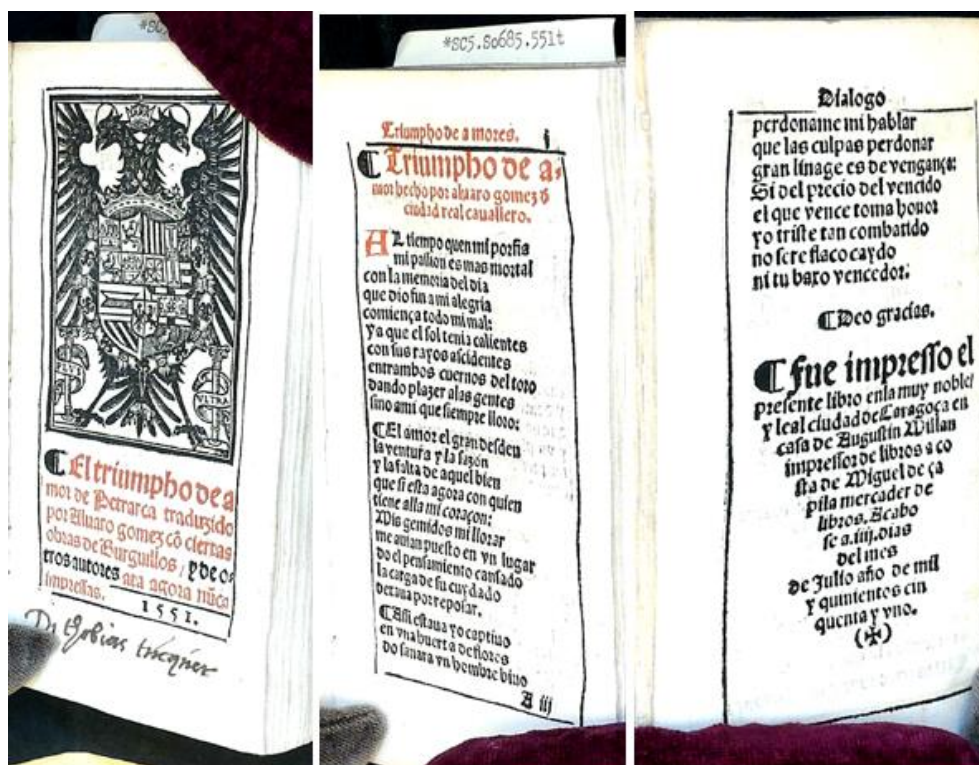 PLVS
VLTRA
¶ El triumpho de a
mor de Petrarca traduzido
por Aluaro gomez cõ ciertas
obras de Burguillos, y de o-
tros autores ata agora nũca
impressas.
1551.
*SC5.So685.551t
Triumpho de amores. i
¶ Triumpho de a-
mor hecho por aluaro gomez ð
ciudad real cauallero.
AL tiempo quen mi porfia
mi passion es mas mortal
con la memoria del dia
que dio fin a mi alegria
comiença todo mi mal:
ya que el sol tenia calientes
con sus rayos ascidentes
entrambos cuernos del toro
dando plazer alas gentes
sino ami que siempre lloro:
¶ El amor el gran desden
la ventura y la sazon
y la falta de aquel bien
que si esta agora con quien
tiene alla mi coraçon:
Mis gemidos mi llorar
me auian puesto en vn lugar
do el pensamiento cansado
la carga de su cuydado
dexaua por reposar.
¶ Assi estaua yo captiuo
en vna huerta de flores
do sanara vn hombre biuo
A iij
Dialogo
perdoname mi hablar
que las culpas perdonar
gran linage es de vengança:
Si del precio del vencido
el que vence toma honor
yo triste tan combatido
no sere flaco caydo
ni tu baxo vencedor:
¶ Deo gracias.
¶ Fue impresso el
presente libro enla muy noble
y leal ciudad de Caragoça en
casa de Augustin Millan
impressor de libros a co
sta de Miguel de ça
pila mercader de
libros. Acabo
se a .iij. dias
del mes
de Julio año de mil
y quinientos cin
quenta y vno.
(✠)